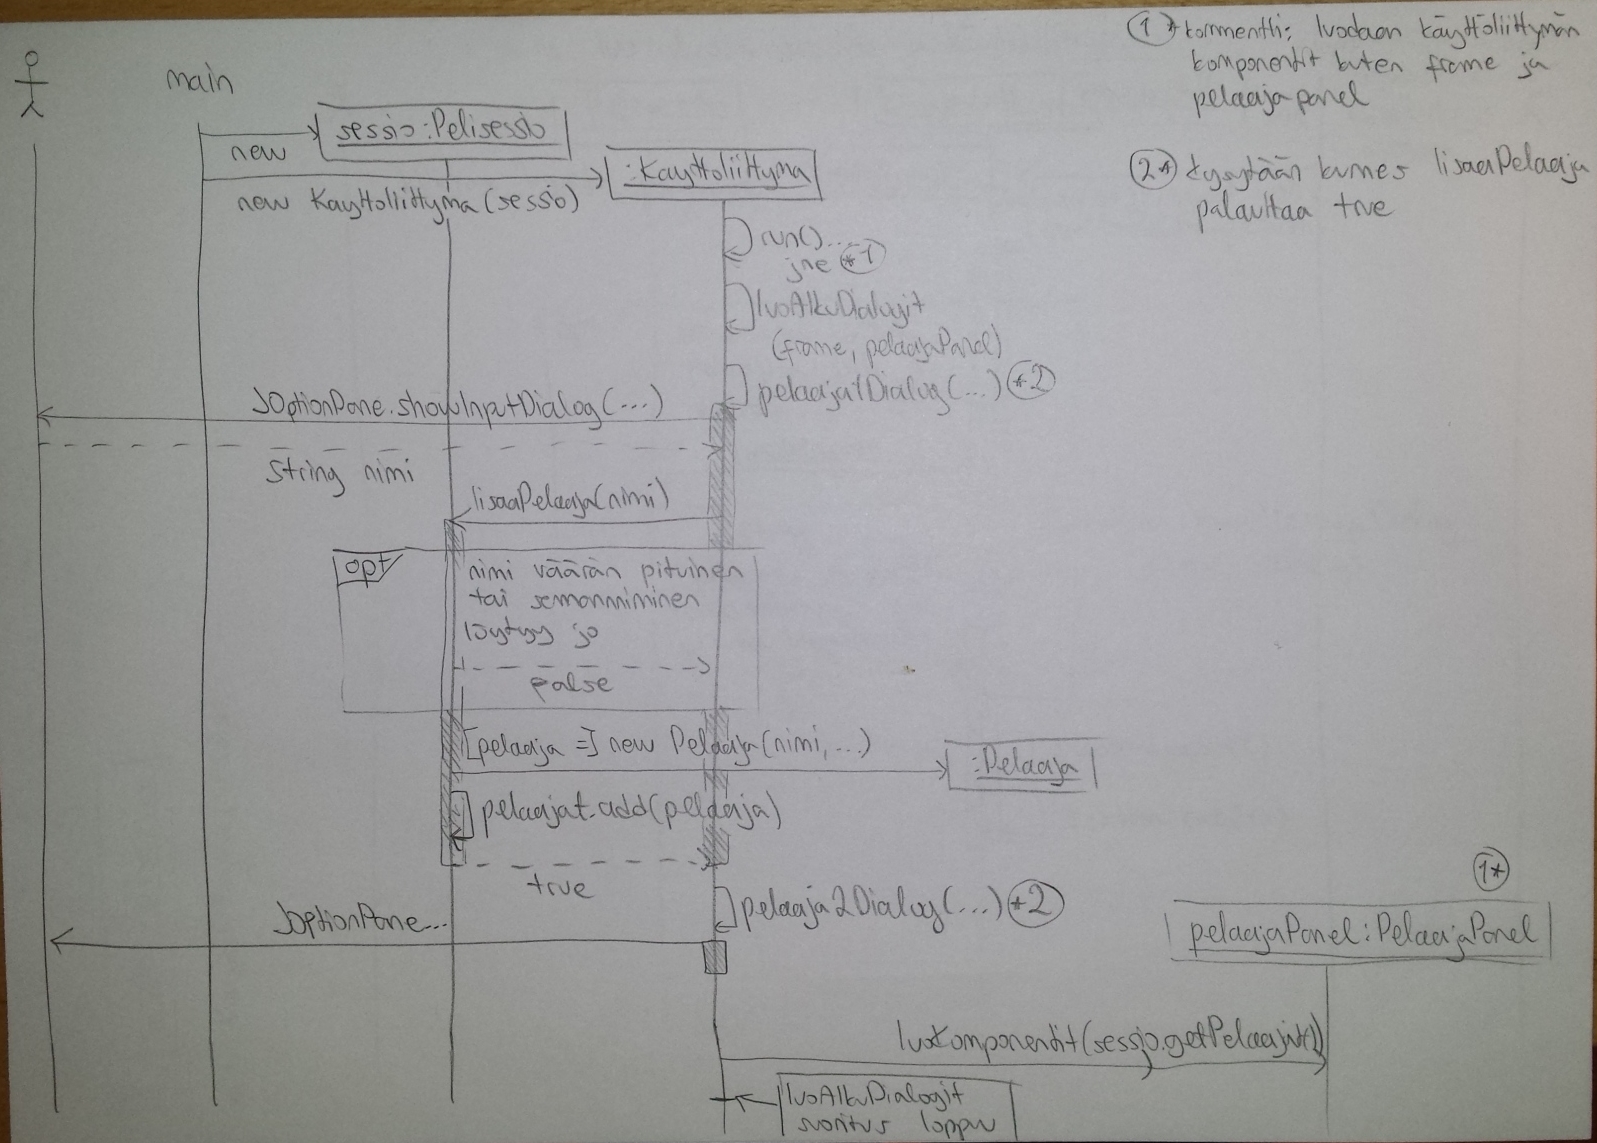 1* kommentti: luodaan käyttöliittymän
komponentit kuten frame ja
pelaajapanel
2* kysytään kunnes lisaaPelaaja
palauttaa true
main
sessio:Pelisessio
new
:Kayttoliittyma
new Kayttoliittyma(sessio)
run()...
jne *1
luoAlkuDialogit
(frame, pelaajaPanel)
pelaaja1Dialog(...) *2
JOptionPane.showInputDialog(...)
String nimi
lisaaPelaaja(nimi)
opt
nimi väärän pituinen
tai samanniminen
löytyy jo
false
[pelaaja =] new Pelaaja(nimi,...)
:Pelaaja
pelaajat.add(pelaaja)
true
1*
pelaaja2Dialog(...) *2
JOptionPane...
pelaajaPanel:PelaajaPanel
luoKomponentit(sessio.getPelaajat())
luoAlkuDialogit
suoritus loppuu